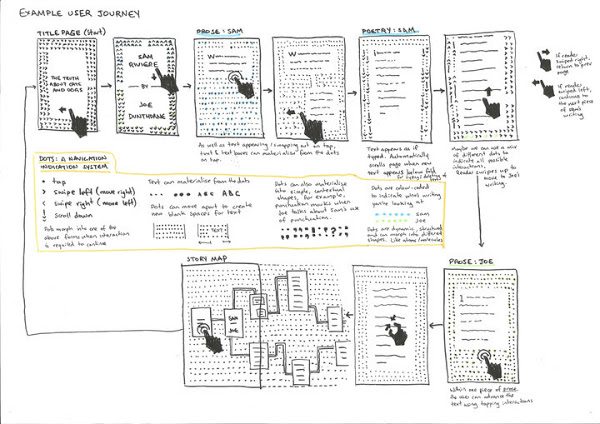 EXAMPLE USER JOURNEY
TITLE PAGE (Start)
THE TRUTH
ABOUT CATS
AND DOGS
SAM
RIVIERE
BY
JOE
DUNTHORNE
PROSE: SAM
As well as text appearing / mapping out on tap,
text & text boxes can 'materialise' from the dots
on tap.
POETRY: SAM
Text appears as if
typed. Automatically
scrolls page when new
text appears below fold.
Maybe we can use a mix
of different dots to
indicate all possible
interactions.
Reader swipes up to
move to Joe's
writing.
If reader
swiped right,
return to prev
page
If reader
swiped left,
continue to
the next piece
of Sam's
writing
DOTS: A NAVIGATION
INDICATION SYSTEM
• tap
> swipe left (move right)
< swipe right (move left)
! scroll down
Dots morph into one of the
above forms when interaction
is required to continue
Text can materialise from the dots
ABC
Dots can move apart to create
new blank spaces for text
TEXT
Dots can also materialise
into simple, contextual
shapes, for example,
punctuation marks when
Joe talks about Sam's use
of punctuation.
Dots are colour-coded
to indicate whose writing
you're looking at
Sam
Joe
Dots are dynamic, structural
and can morph into different
shapes. Like atoms/molecules
STORY MAP
SAM
JOE
PROSE: JOE
Within one piece of prose
the user can advance the
text using tapping interactions